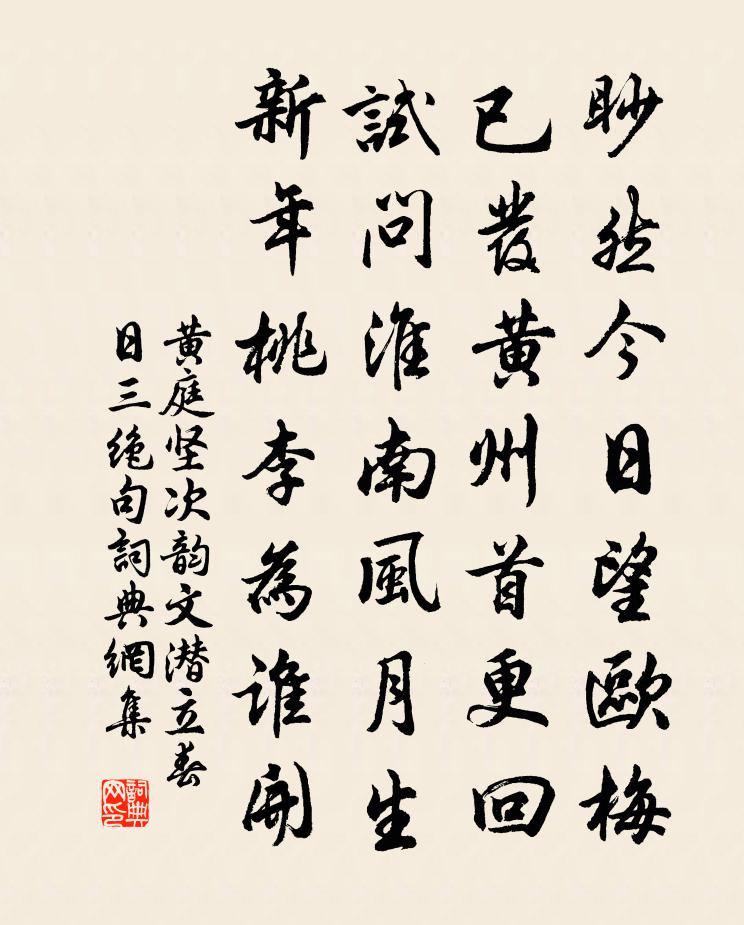 眇然今日望歐梅
已發黄州首更回
試問淮南風月生
新年桃李為誰開
黄庭坚次韵文潜立春
日三绝句詞典網集
詞典
网印